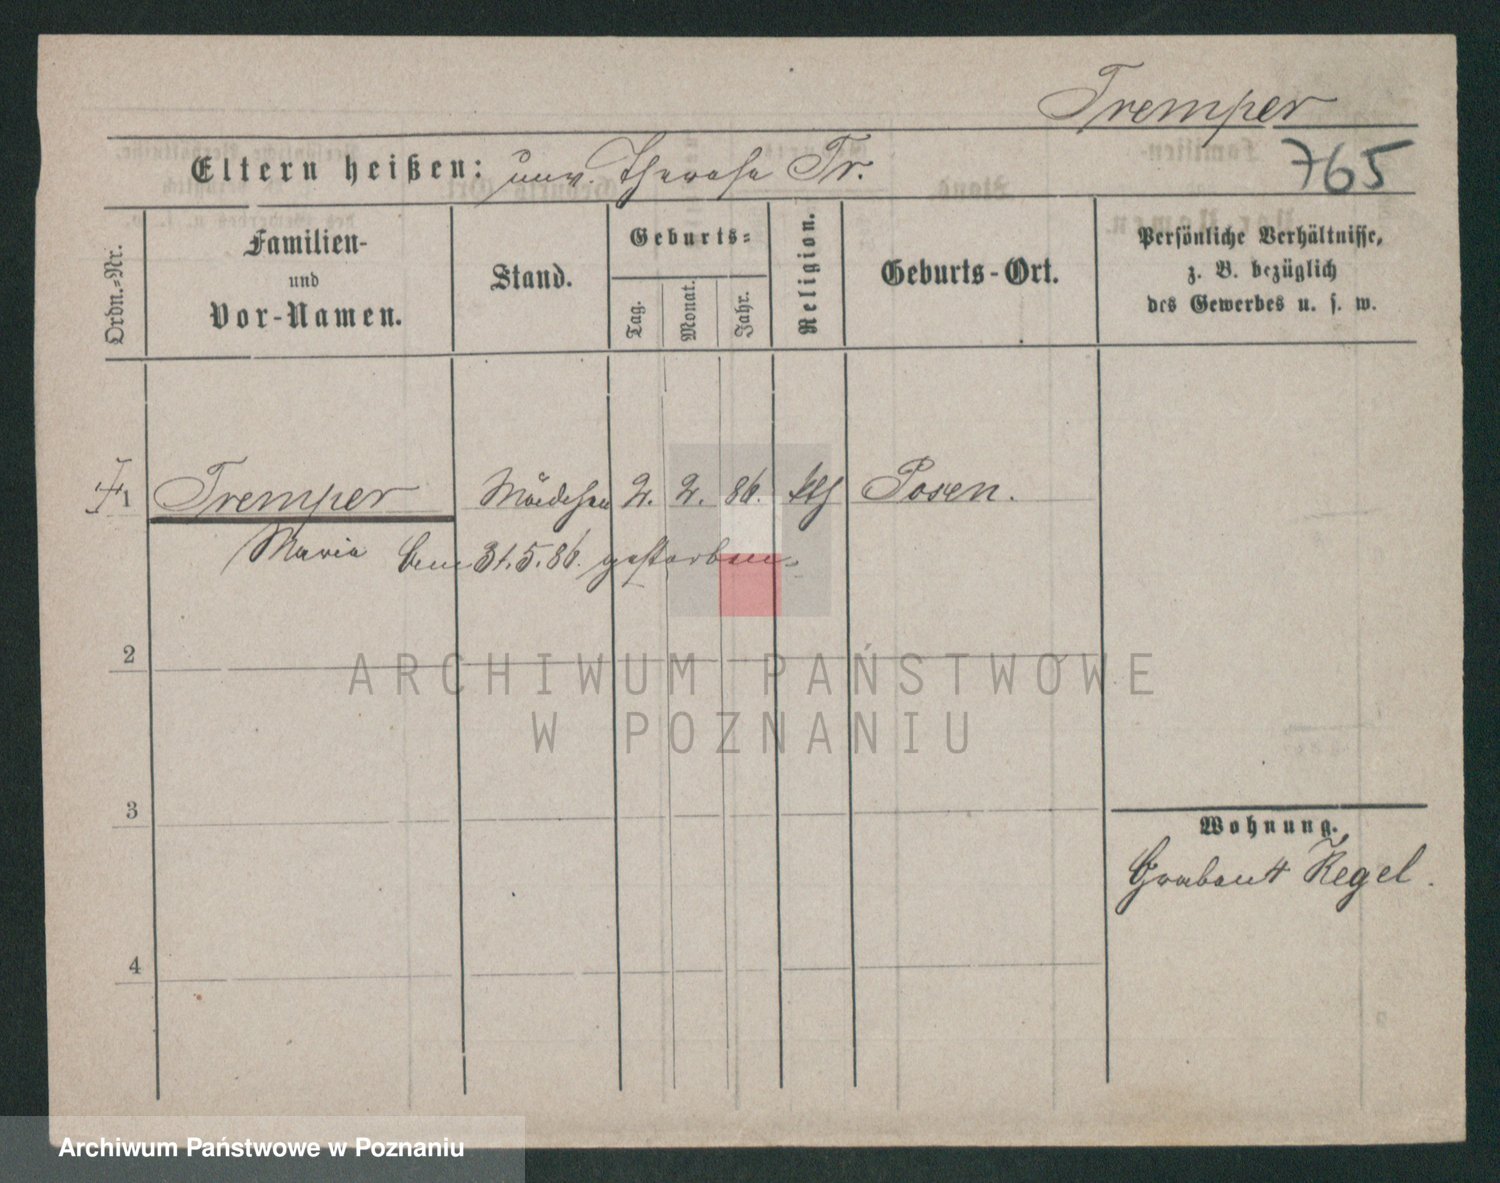 Tremper
765
Eltern heißen: unv. Therese Tr.
Ordn.-Nr.
Familien-
und
Vor-Namen.
Stand.
Geburts-
Tag.
Monat.
Jahr.
Religion.
Geburts-Ort.
Persönliche Verhältnisse,
z. B. bezüglich
des Gewerbes u. s. w.
1 Tremper Mädchen 2. 2. 86. kth Posen.
Maria 31.5.86. gestorben.
2
ARCHIWUM PAŃSTWOWE
W POZNANIU
3
Wohnung.
Graben 4 Kegel.
4
Archiwum Państwowe w Poznaniu